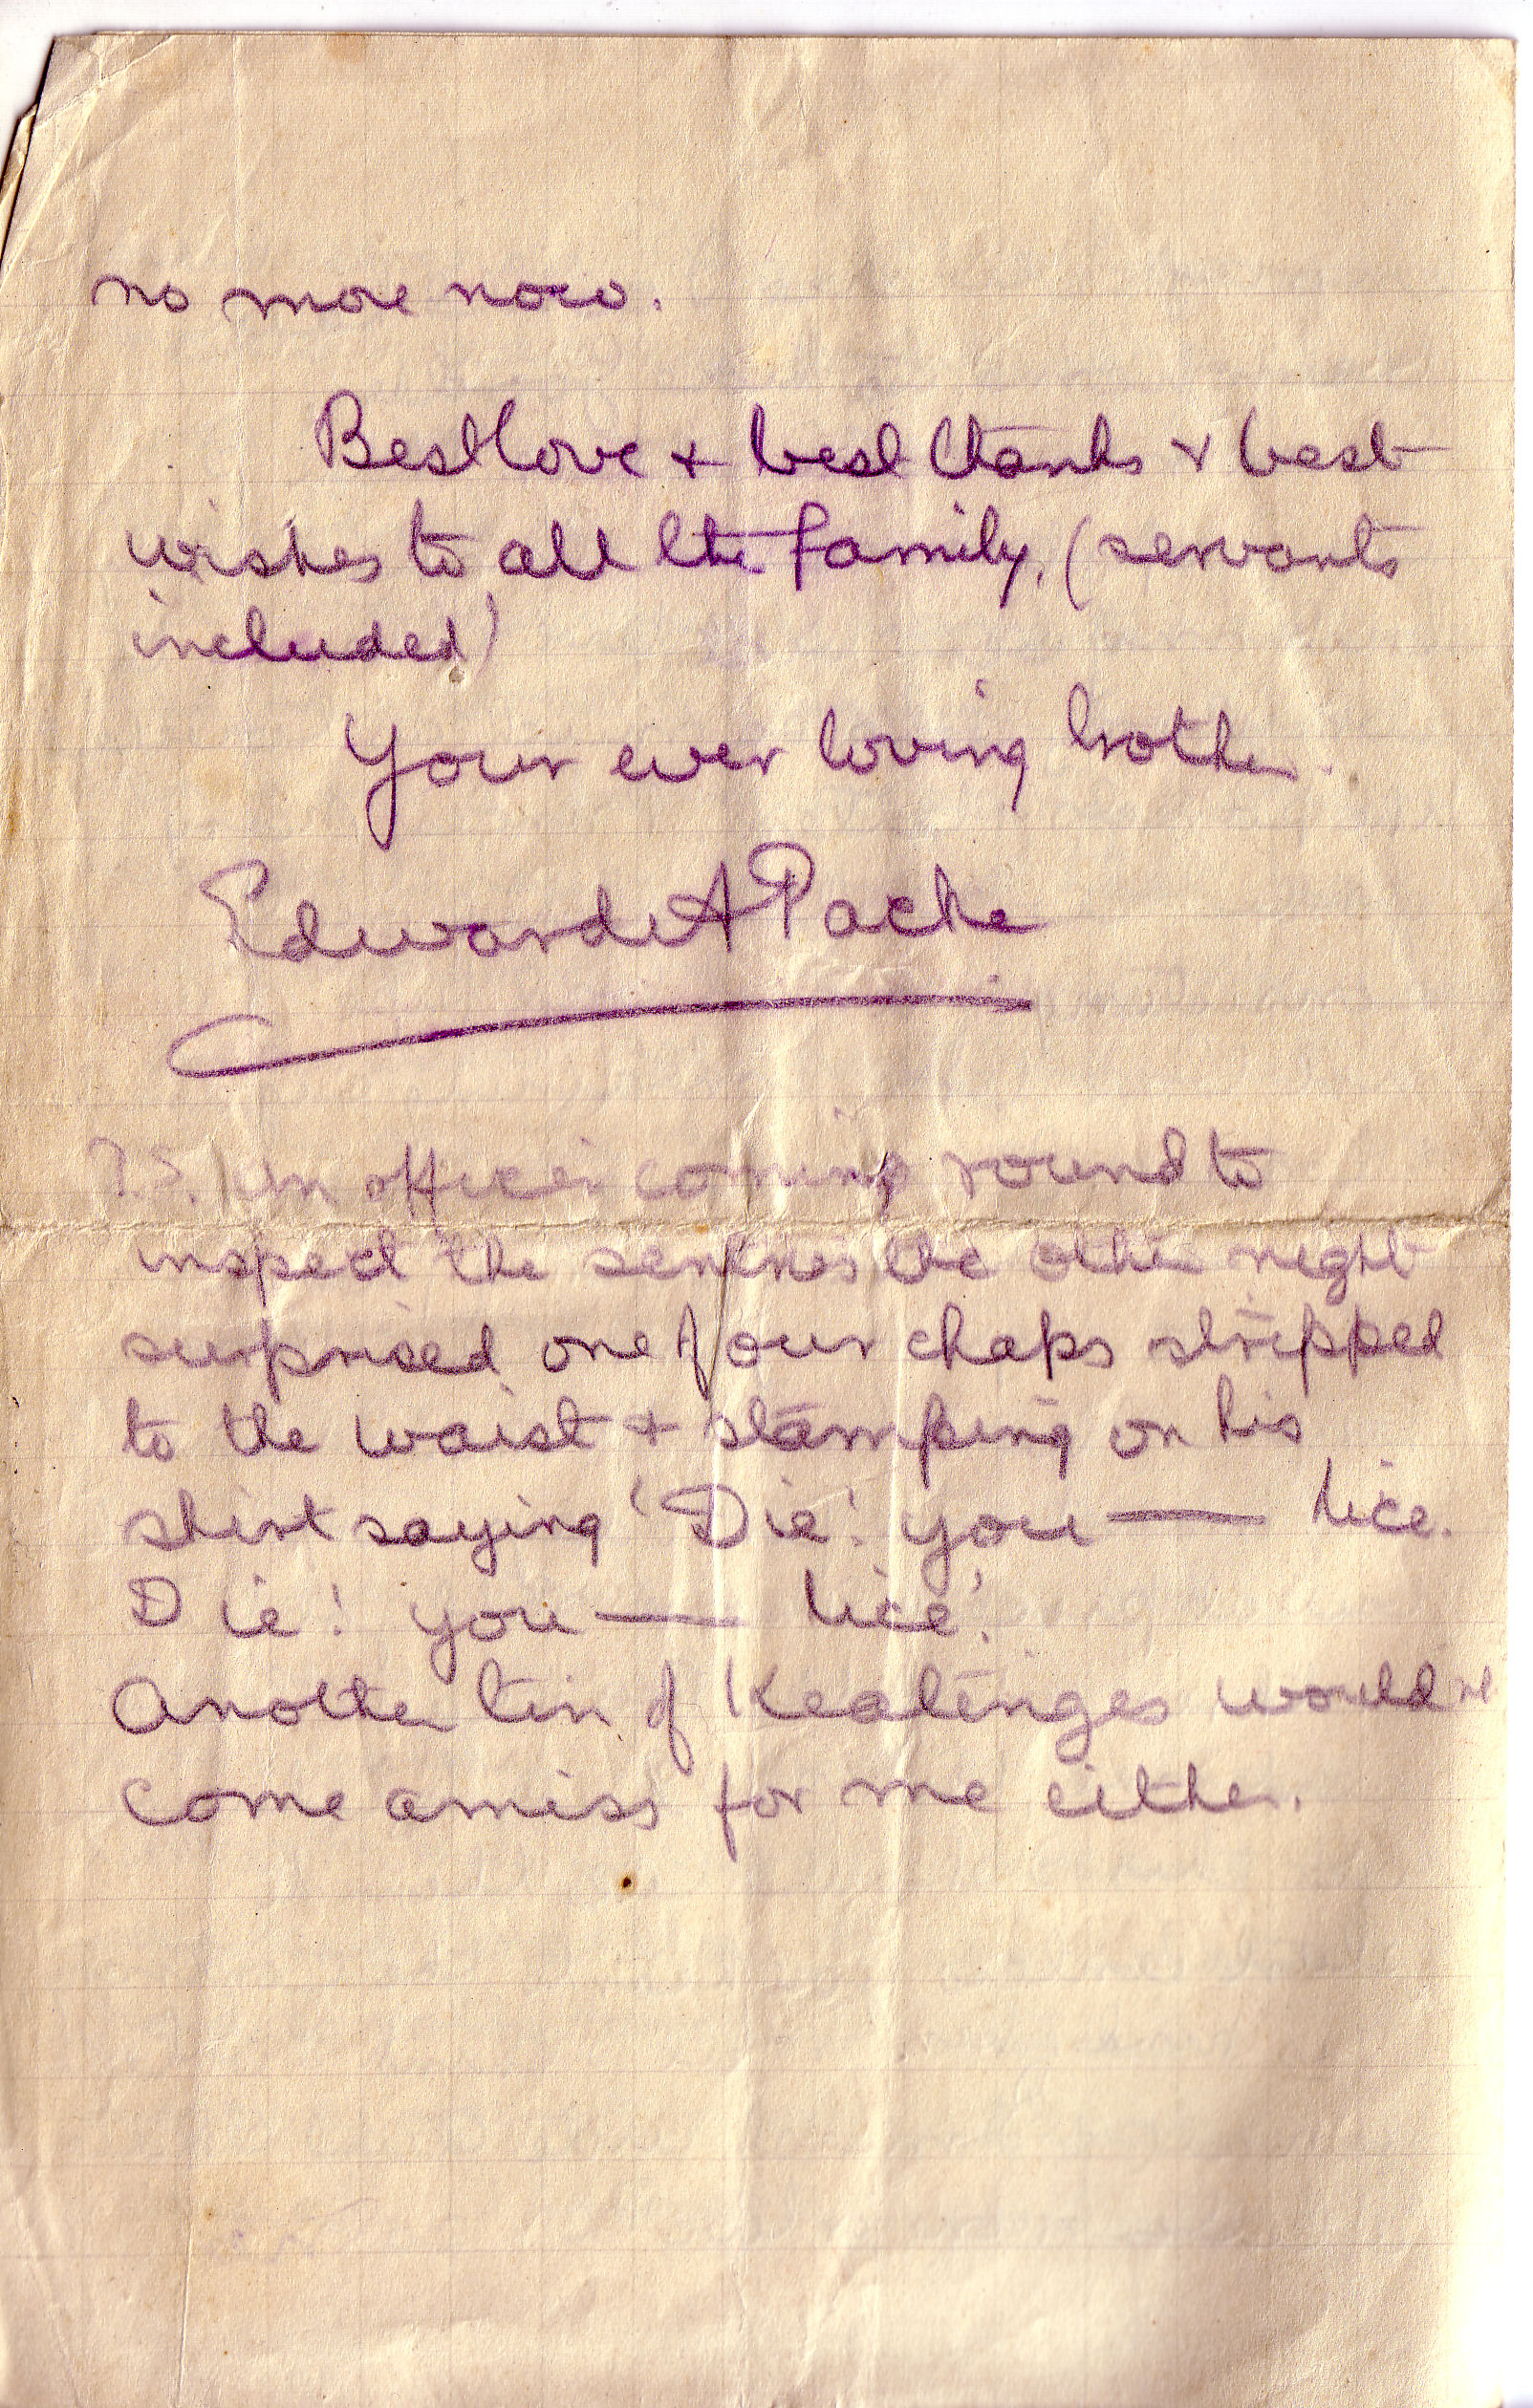 no more now.
Best love + best thanks & best
wishes to all the family, (servants
included)
Your ever loving brother.
Edward A Pache
P.S. An officer coming round to
inspect the sentries the other night
surprised one of our chaps stripped
to the waist + stamping on his
shirt saying 'Die! you — lice.
Die! you — lice!'
Another tin of Keatinges wouldnt
come amiss for me either.